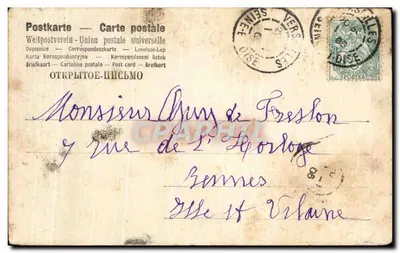 Postkarte - Carte postale
Weltpostverein - Union postale universelle
Dopisnice - Correspondenzkarte - Levelezo-Lap
Karta Korespondencyjna - Korespondenční lístek
Briefkaart - Cartolina postale - Post card - Brefkort
ОТКРЫТОЕ-ПИСЬМО
VERSAILLES
SEINE-ET-OISE
Monsieur Guy de Freslon
7 rue de l'Horloge
Rennes
Ille et Vilaine
CPAPHIL